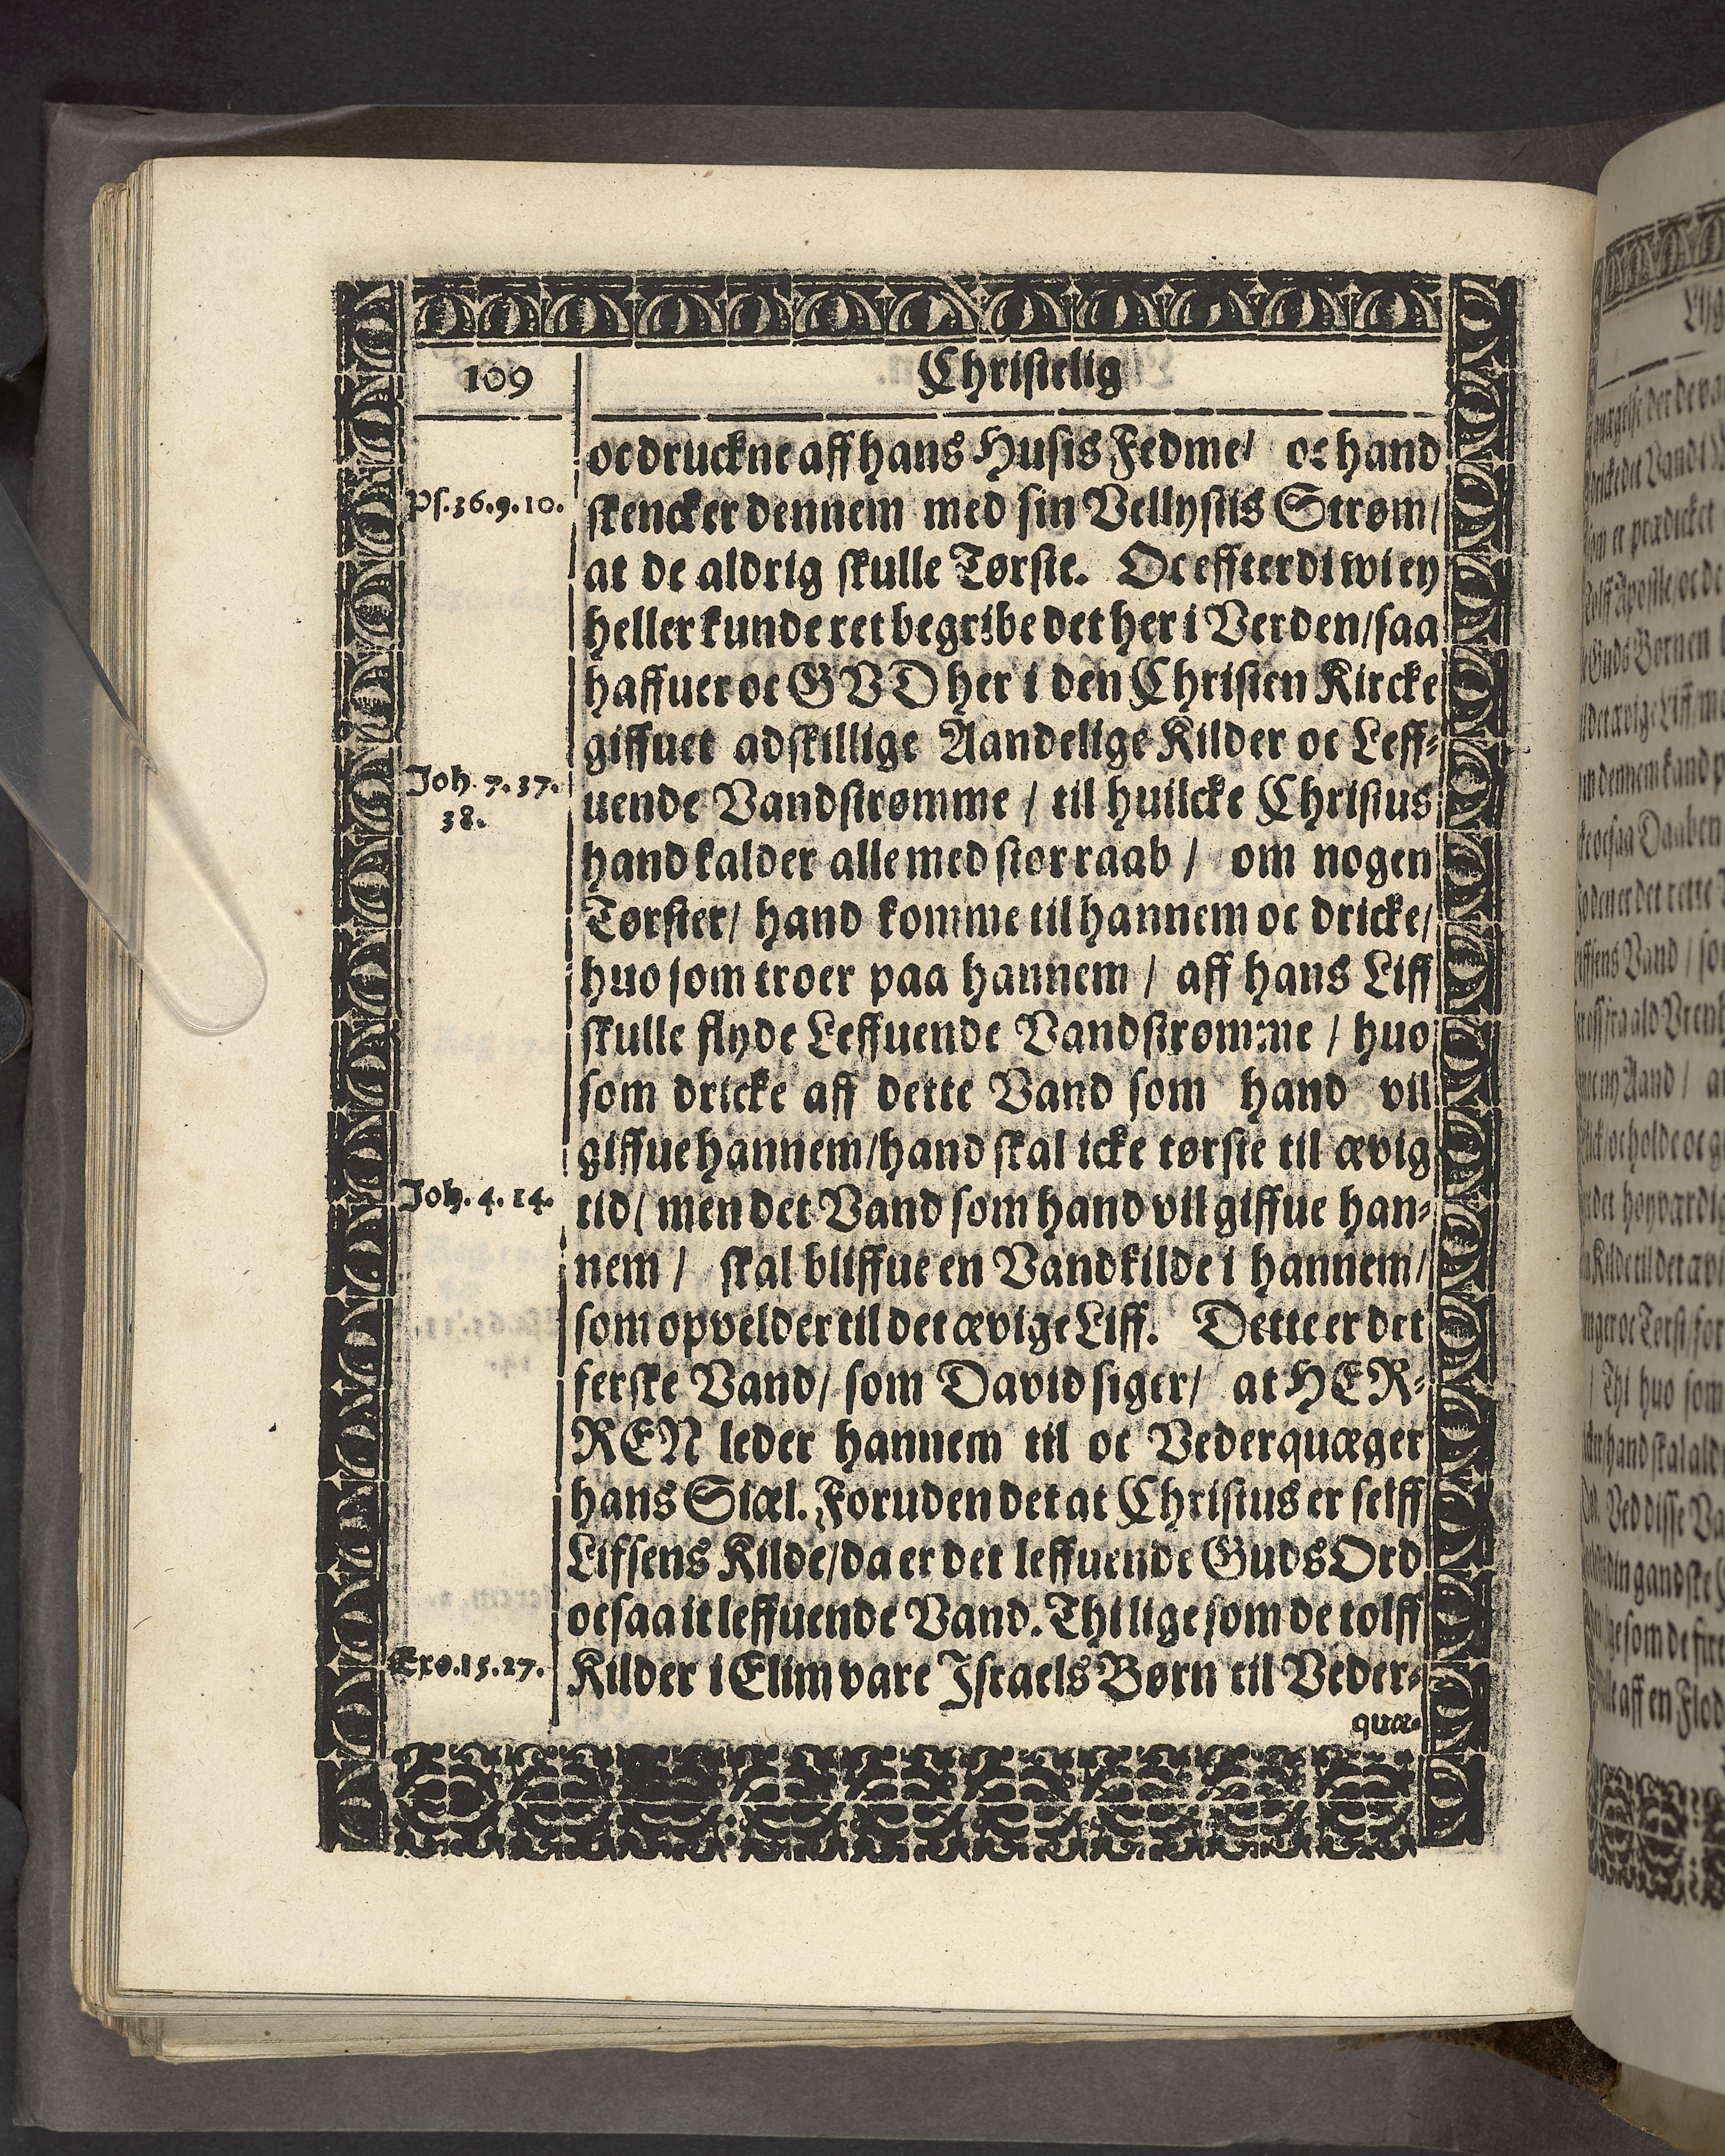 109
Christelig
oc druckne aff hans Husis Fedme/ oc hand
Ps. 36. 9. 10.
skencker dennem med sin Vellystis Strøm/
at de aldrig skulle Tørste. Oc effterdi wi ey
heller kunde ret begribe det her i Verden/ saa
haffuer oc GVD her i den Christen Kircke
giffuet adskillige Aandelige Kilder oc Leff-
Joh. 7. 37.
38.
uende Vandstrømme / til huilcke Christus
hand kalder alle med stor raab / om nogen
Tørster/ hand komme til hannem oc dricke/
huo som troer paa hannem / aff hans Liff
skulle flyde Leffuende Vandstrømme / huo
som dricke aff dette Vand som hand vil
giffue hannem/ hand skal icke tørste til ævig
Joh. 4. 14.
tid/ men det Vand som hand vil giffue han-
nem / skal bliffue en Vandkilde i hannem/
som opvelder til det ævige Liff. Dette er det
ferske Vand/ som David siger/ at HER-
REN leder hannem til oc Vederquæger
hans Siæl. Foruden det at Christus er selff
Lifsens Kilde/ da er det leffuende Guds Ord
ocsaa it leffuende Vand. Thi lige som de tolff
Exo. 15. 27.
Kilder i Elim vare Israels Børn til Veder-
quæ-